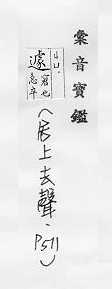 彙音寶鑑
遽
窘也
急卒
(居上去聲，P511)